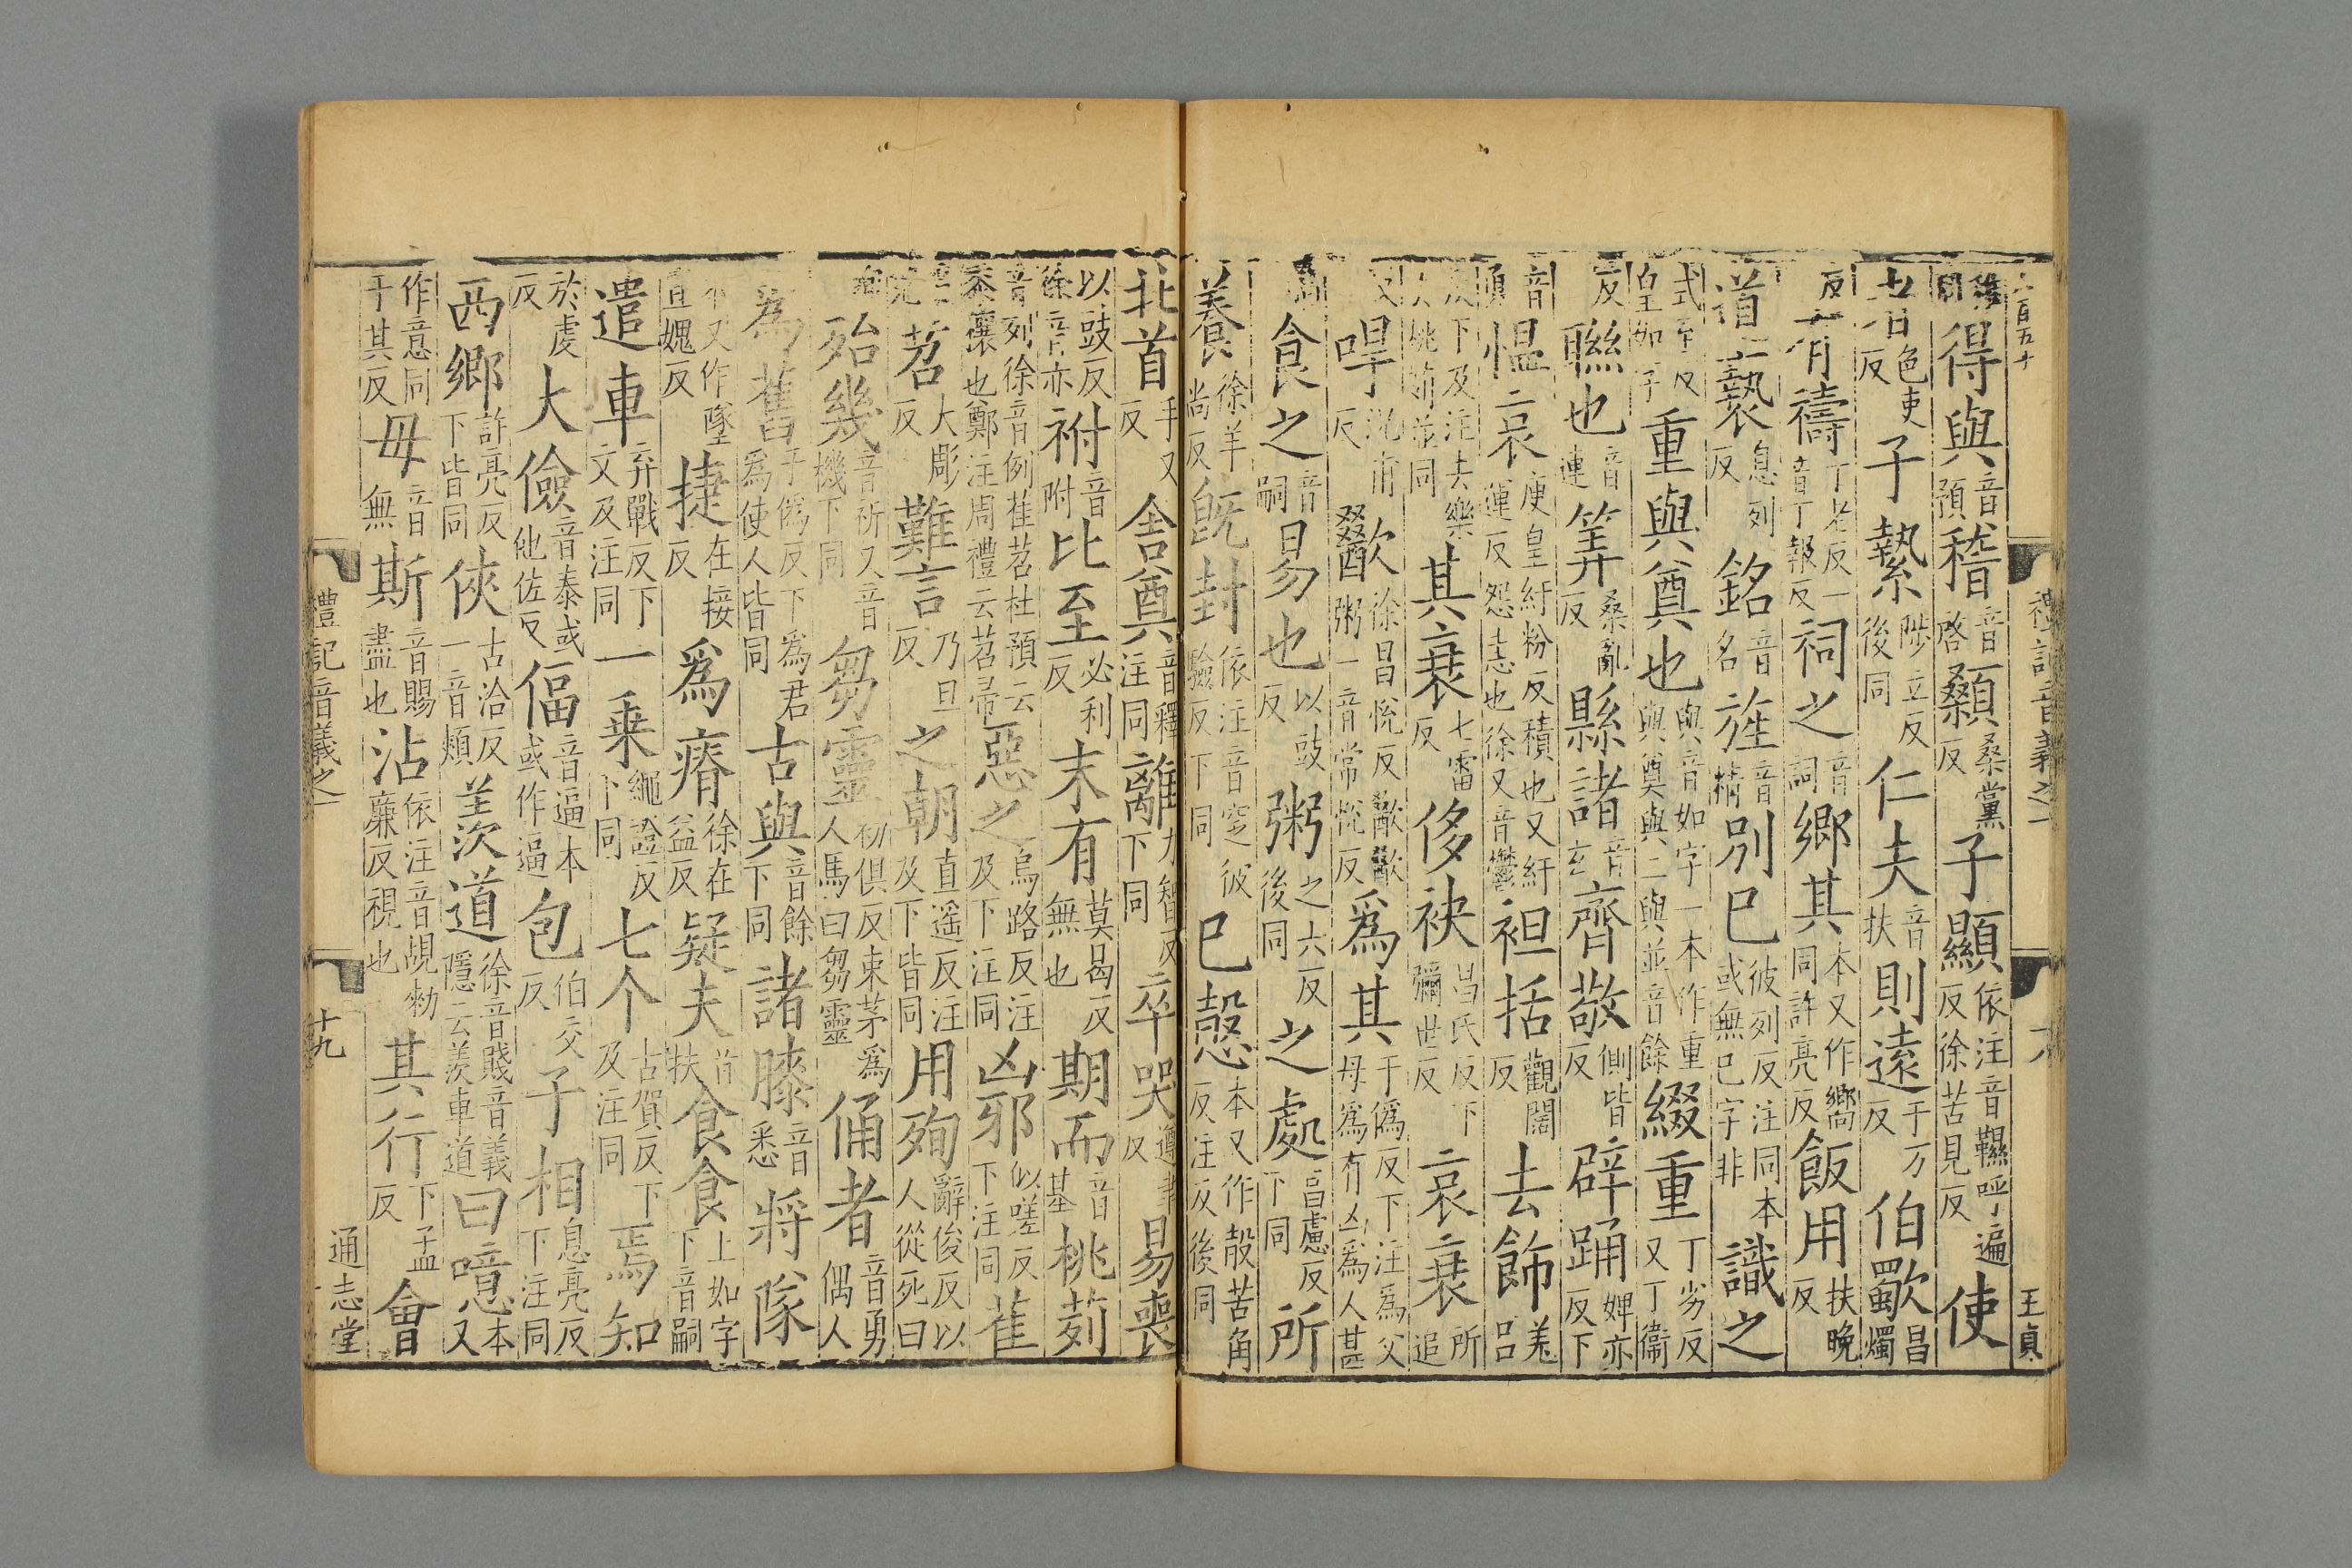 禮記音義之一
王貞
得與音預稽音啓顙桑黨反子顯依注音韅呼遍反徐苦見反使
色吏反子縶陟立反後同仁夫音扶則遠于万反伯歜昌燭
反有禱丁老反一音丁報反祠之音詞鄉其本又作嚮同許亮反飯用扶晚反
道褻息列反銘音名旌音精別已彼列反注同本或無已字非識之
式至反皇如字重與奠也與音如字一本作重與奠與二與並音餘綴重丁劣反又丁衞
反聯也音連筭桑亂反縣諸音玄齊敬側皆反辟踊婢亦反下
音慍哀庾皇紆粉反積也又紆運反怨恚也徐又音鬱袒括觀闊反去飾羌呂
反下及注去樂去姚笳並同其衰七雷反侈袂昌氏反下彌世反哀衰所追
反哻況甫反歠徐昌悅反歠歠粥一音常悅反爲其于僞反下注爲父母爲有凶爲人甚
食之音嗣易也以豉反粥之六反後同之處昌慮反下同所
養徐羊尚反既封依注音窆彼驗反下同已愨本又作殻苦角反注反後同
北首手又反舍奠音釋注同離力智反下同卒哭遵聿反易喪
以豉反徐音亦祔音附比至必利反末有莫曷反無也期而音基桃茢
音列徐音例萑苕杜預云黍穰也鄭注周禮云苕帚惡之烏路反注及下注同凶邪似嗟反下注同萑
苕大彫反難言乃旦反之朝直遥反注及下皆同用殉辭俊反以人從死曰
殉殆幾音祈又音機下同芻靈初俱反束茅爲人馬曰芻靈俑者音勇偶人
爲舊于僞反下爲君爲使人皆同古與音餘下同諸膝音悉將隊
本又作墜直媿反捷在接反爲瘠徐在益反疑夫音扶食食上如字下音嗣
遣車弃戰反下文及注同一乗繩證反下同七个古賀反下及注同焉知
於虔反大儉音泰或他佐反偪音逼本或作逼包伯交反子相息亮反下注同
西鄉許亮反下皆同俠古洽反一音頰羨道徐音賤音義隱云羨車道曰噫本又
作意同于其反毋音無斯音賜盡也沾依注音覘勑廉反視也其行下孟反會
禮記音義之一
十九
通志堂